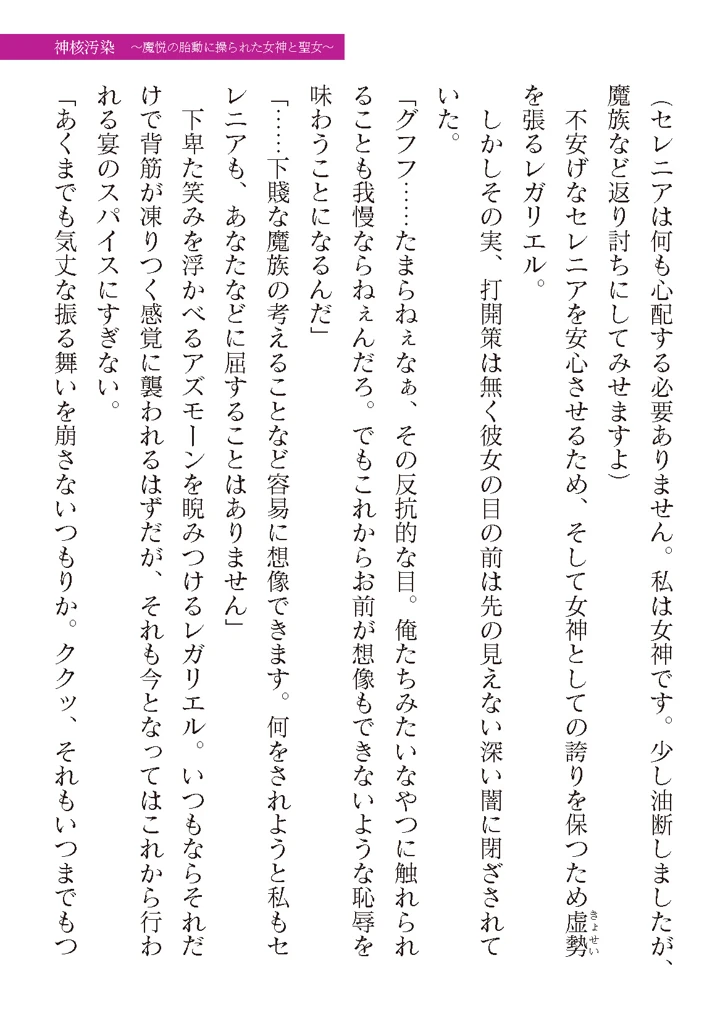 神核汚染　～魔悦の胎動に操られた女神と聖女～
（セレニアは何も心配する必要ありません。私は女神です。少し油断しましたが、
魔族など返り討ちにしてみせますよ）
　不安げなセレニアを安心させるため、そして女神としての誇りを保つため虚勢きょせい
を張るレガリエル。
　しかしその実、打開策は無く彼女の目の前は先の見えない深い闇に閉ざされて
いた。
「グフフ……たまらねぇなぁ、その反抗的な目。俺たちみたいなやつに触れられ
ることも我慢ならねぇんだろ。でもこれからお前が想像もできないような恥辱を
味わうことになるんだ」
「……下賤な魔族の考えることなど容易に想像できます。何をされようと私もセ
レニアも、あなたなどに屈することはありません」
　下卑た笑みを浮かべるアズモーンを睨みつけるレガリエル。いつもならそれだ
けで背筋が凍りつく感覚に襲われるはずだが、それも今となってはこれから行わ
れる宴のスパイスにすぎない。
「あくまでも気丈な振る舞いを崩さないつもりか。ククッ、それもいつまでもつ